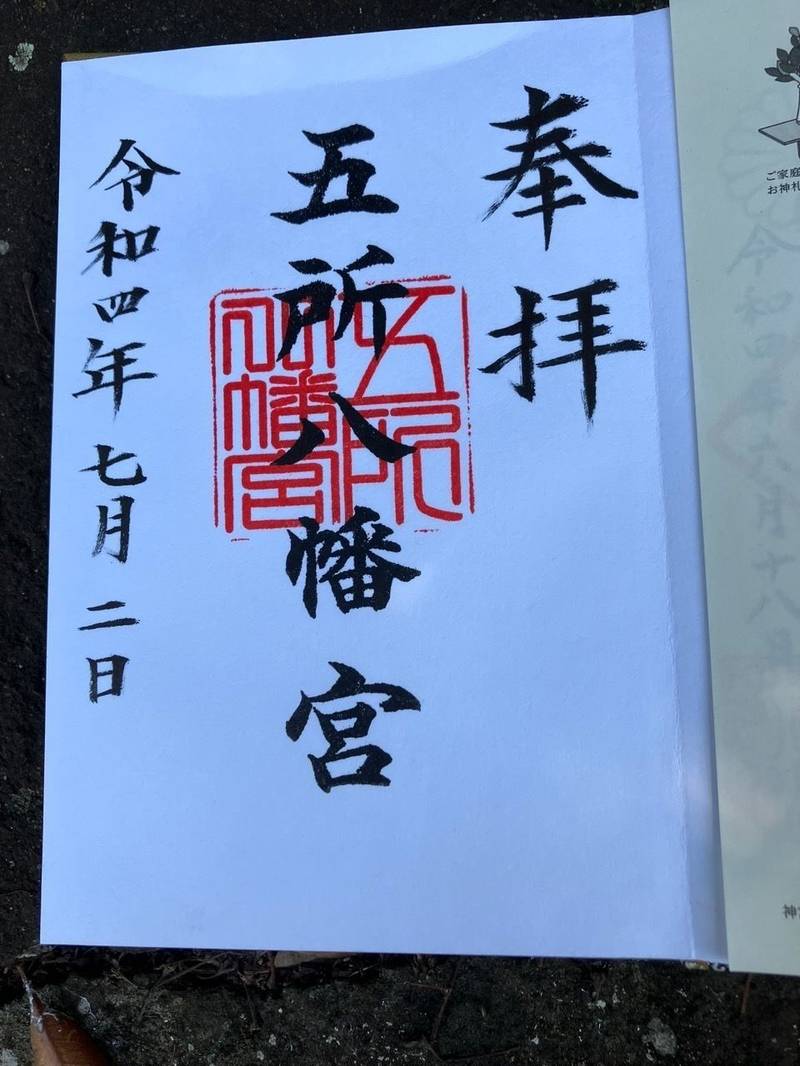 奉拝
五所八幡宮
五所
八幡宮
令和四年七月二日
ご家庭
お神札